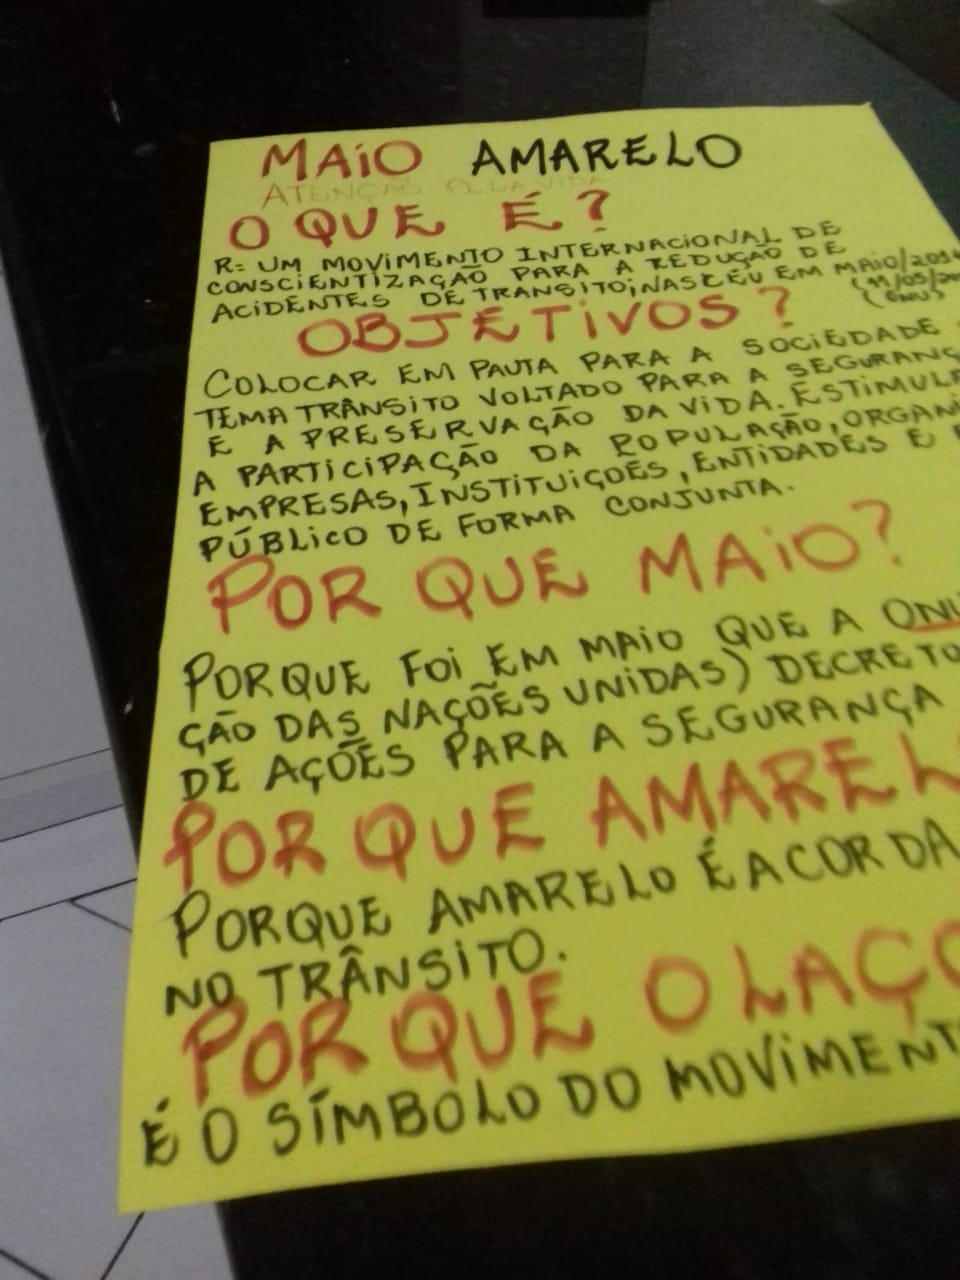 MAIO AMARELO
ATENÇÃO PELA VIDA
O QUE É?
R= UM MOVIMENTO INTERNACIONAL DE
CONSCIENTIZAÇÃO PARA A REDUÇÃO DE
ACIDENTES DE TRANSITO; NASCEU EM MAIO/201
(11/05/20
(ONU)
OBJETIVOS?
COLOCAR EM PAUTA PARA A SOCIEDADE
TEMA TRÂNSITO VOLTADO PARA A SEGURANÇ
E A PRESERVAÇÃO DA VIDA. ESTIMULA
A PARTICIPAÇÃO DA POPULAÇÃO, ORGANI
EMPRESAS, INSTITUIÇOES, ENTIDADES E
PÚBLICO DE FORMA CONJUNTA.
POR QUE MAIO?
PORQUE FOI EM MAIO QUE A ONU
ÇÃO DAS NAÇÕES UNIDAS) DECRETO
DE AÇÕES PARA A SEGURANÇA
POR QUE AMAREL
PORQUE AMARELO É A COR DA
NO TRÂNSITO.
POR QUE O LAÇO
É O SÍMBOLO DO MOVIMENT